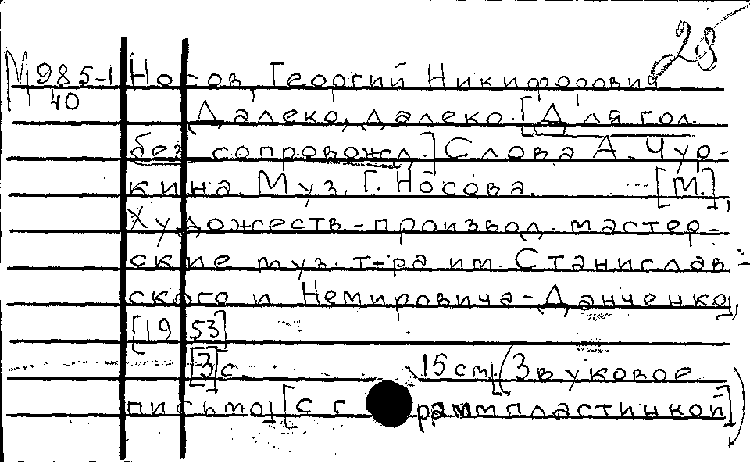 28
М 985-1 Носов, Георгий Никифорович
40
Далеко, далеко. [Для гол.
без сопровожд.] Слова А. Чур-
кина. Муз. Г. Носова. [М.],
Художеств.-производ. мастер-
ские муз. т-ра им. Станислав-
ского и Немировича-Данченко,
[1953]
[3] с. 15 см. (Звуковое
письмо) [с граммпластинкой]